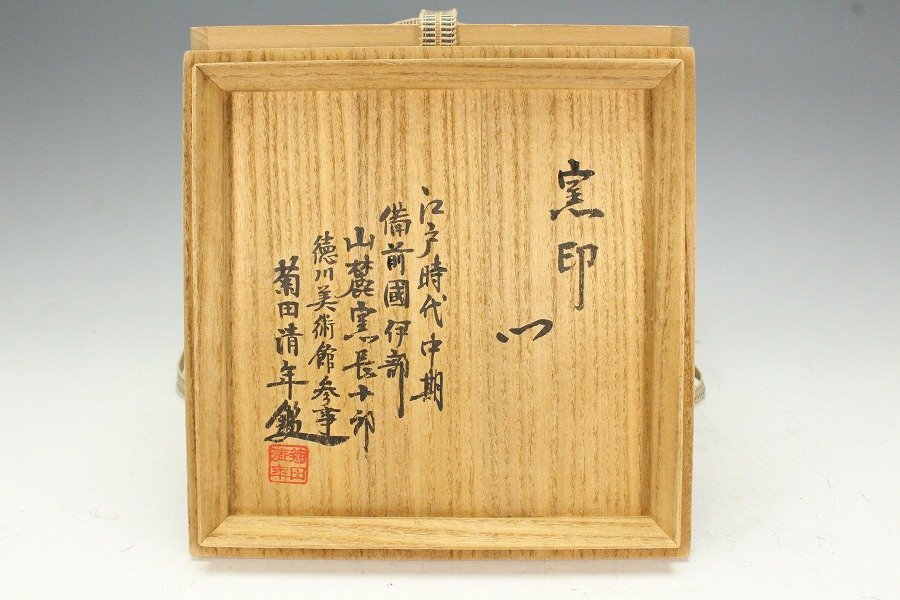 窯印
江戸時代中期
備前國伊部
山麓窯長十郎
徳川美術館参事
菊田清年鑑
菊田清年